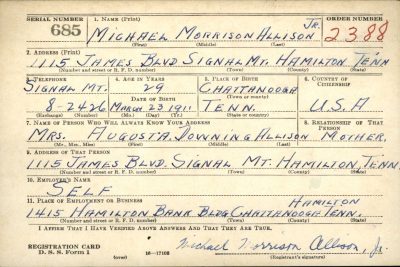 SERIAL NUMBER 1. NAME (Print) ORDER NUMBER
685 MICHAEL MORRISON ALLISON JR. 2388
(First) (Middle) (Last)
2. ADDRESS (Print)
1115 JAMES BLVD SIGNAL MT. HAMILTON TENN
(Number and street or R. F. D. number) (Town) (County) (State)
3. TELEPHONE 4. AGE IN YEARS 5. PLACE OF BIRTH 6. COUNTRY OF CITIZENSHIP
SIGNAL MT. 29 CHATTANOOGA
DATE OF BIRTH (Town or county)
8-2426 MARCH 23 1911 TENN. U.S.A
(Exchange) (Number) (Mo.) (Day) (Yr.) (State or country)
7. NAME OF PERSON WHO WILL ALWAYS KNOW YOUR ADDRESS 8. RELATIONSHIP OF THAT PERSON
MRS. AUGUSTA DOWNING ALLISON MOTHER.
(Mr., Mrs., Miss) (First) (Middle) (Last)
9. ADDRESS OF THAT PERSON
1115 JAMES BLVD. SIGNAL MT. HAMILTON, TENN.
(Number and street or R. F. D. number) (Town) (County) (State)
10. EMPLOYER'S NAME
SELF
11. PLACE OF EMPLOYMENT OR BUSINESS HAMILTON
1415 HAMILTON BANK BLDG CHATTANOOGA TENN.
(Number and street or R. F. D. number) (Town) (County) (State)
I AFFIRM THAT I HAVE VERIFIED ABOVE ANSWERS AND THAT THEY ARE TRUE.
REGISTRATION CARD
D. S. S. Form 1 16—17105 Michael Morrison Allison, Jr.
(over) (Registrant's signature)